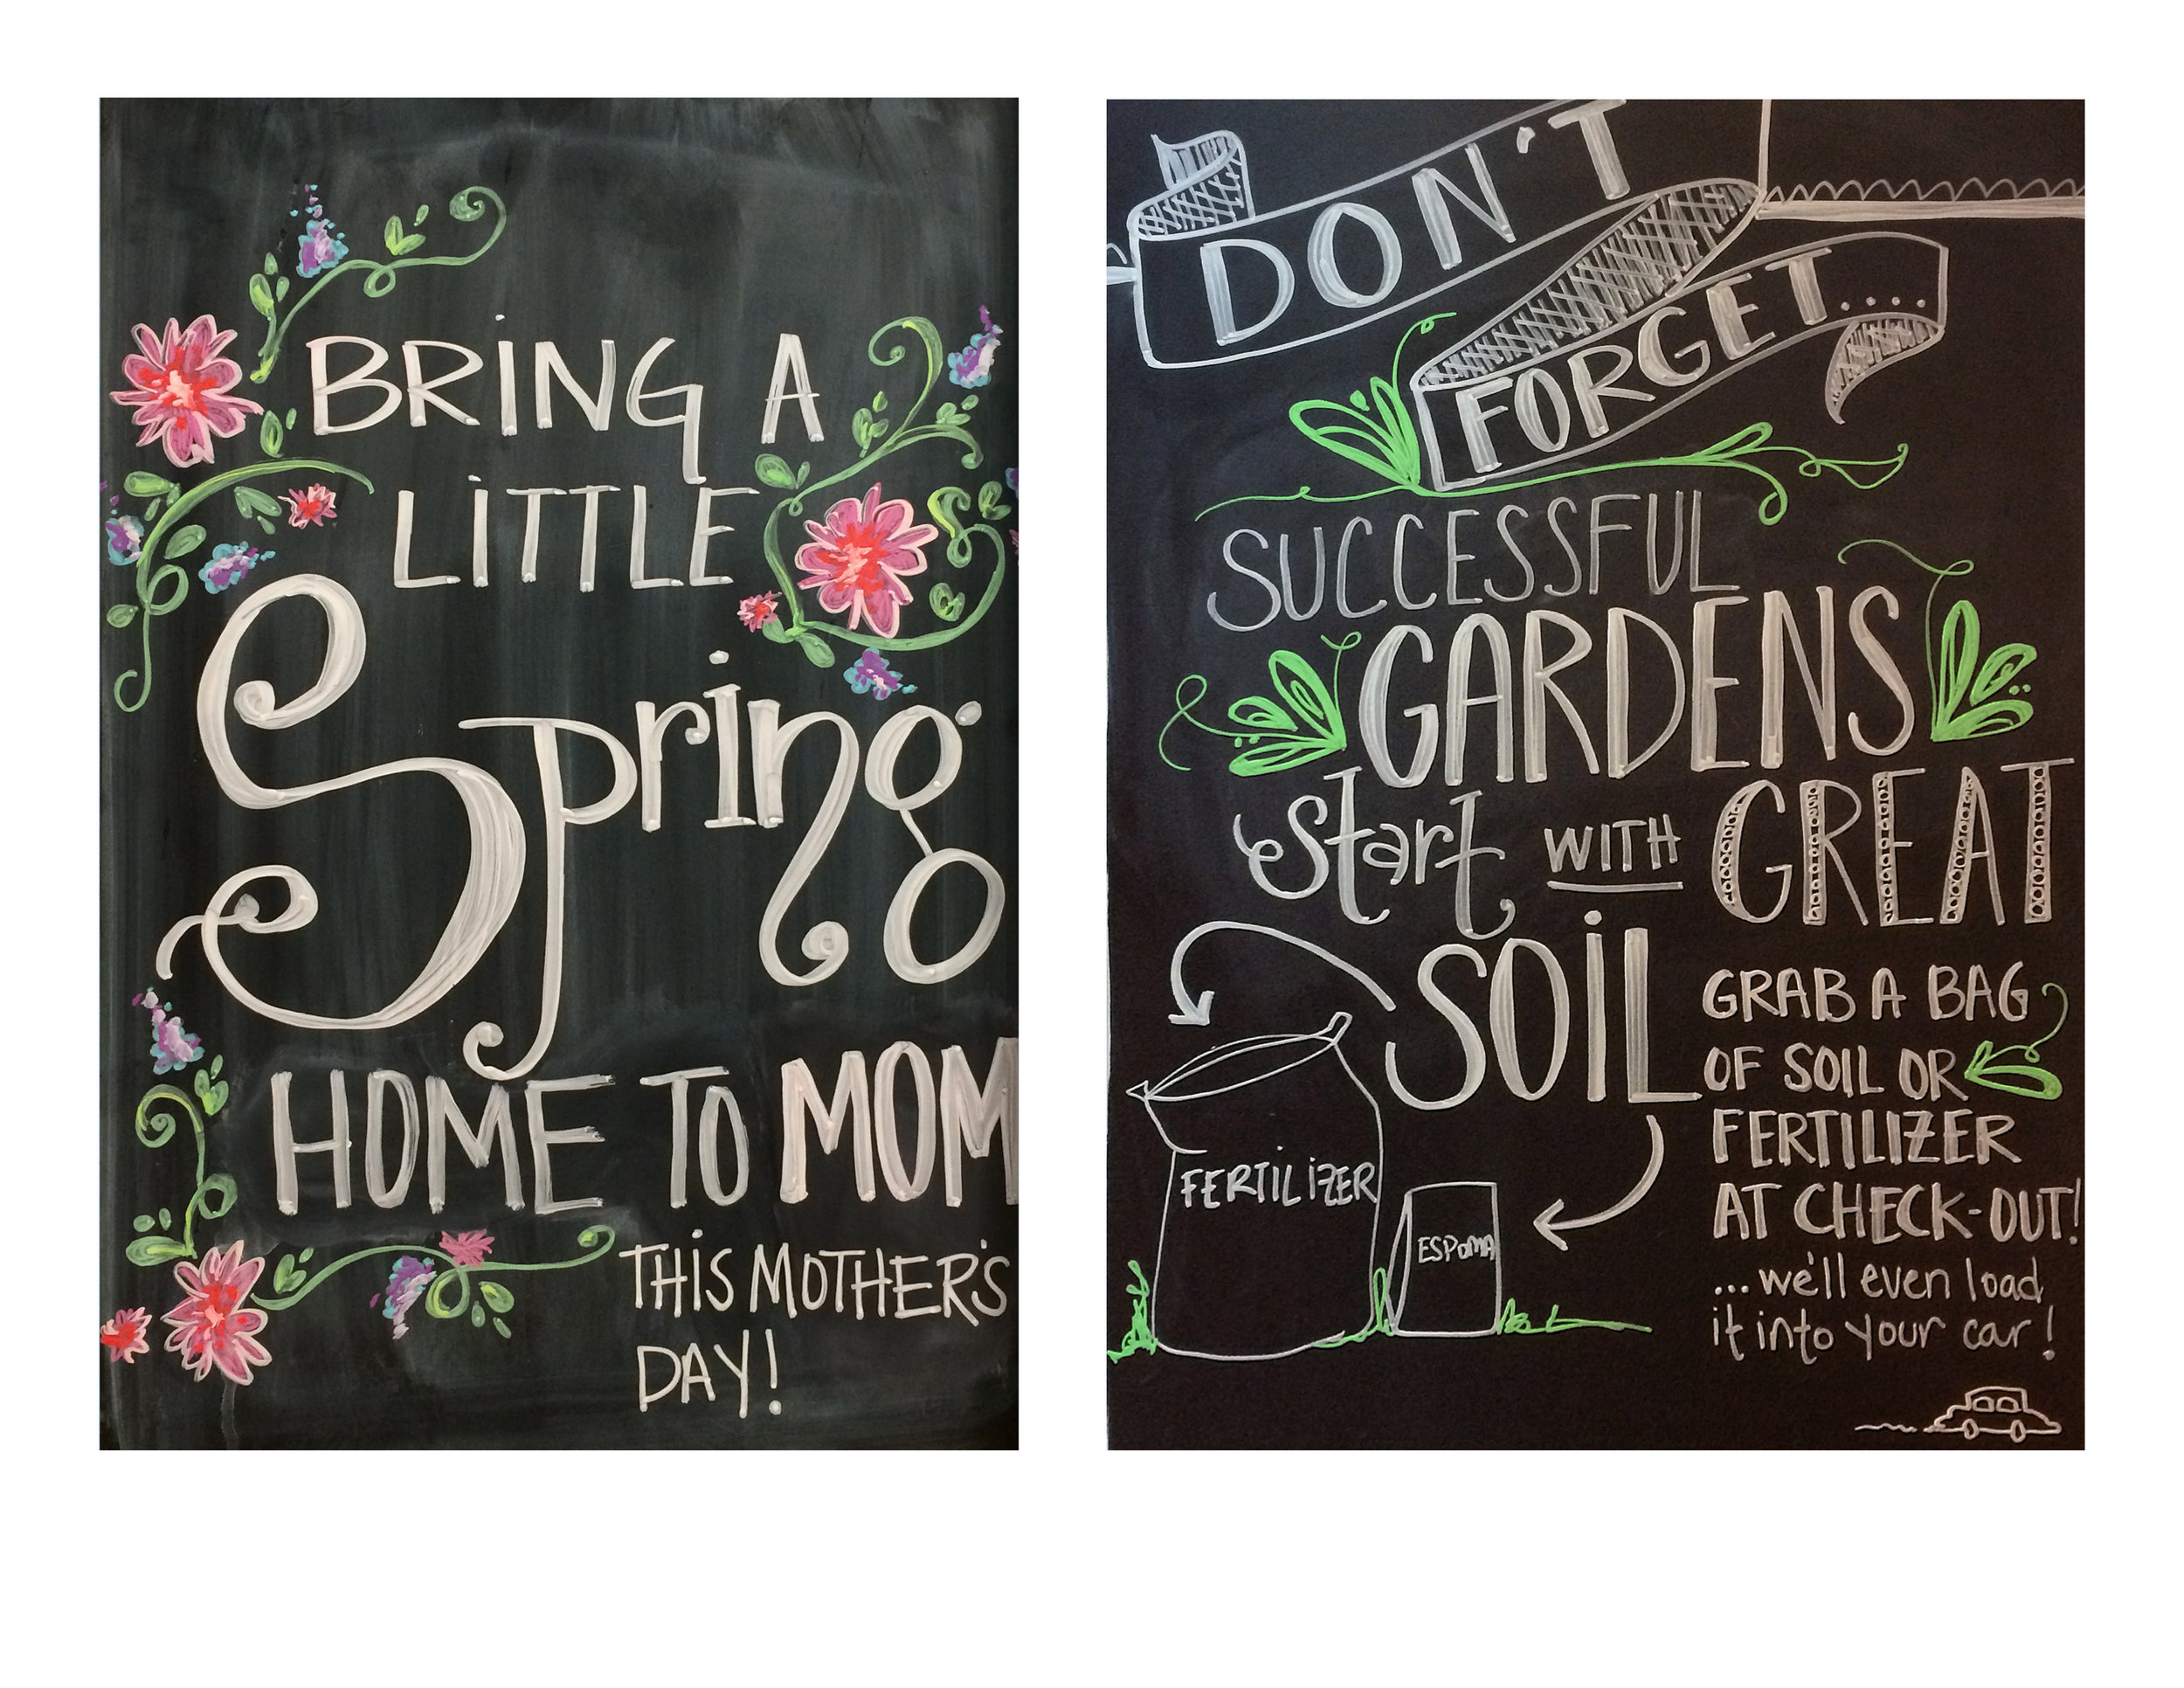 BRING A
LITTLE
Spring
HOME TO MOM
THIS MOTHER'S
DAY!
DON'T
FORGET.....
SUCCESSFUL
GARDENS
Start WITH GREAT
SOIL
GRAB A BAG
OF SOIL OR
FERTILIZER
AT CHECK-OUT!
...we'll even load
it into your car!
FERTILIZER
ESPOMA